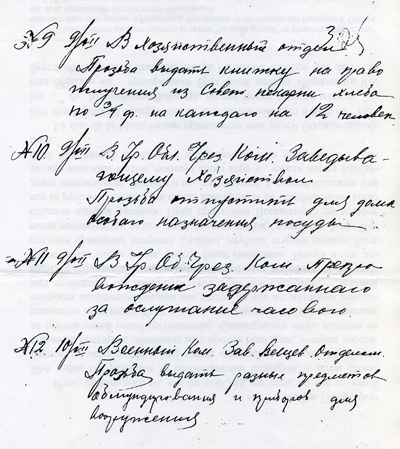 №9 9/VII В Хозяственный отдел
Прозьба выдать книжку на право
получения из Совет. пекарни хлеба
по 3/4 ф. на каждаго на 12 человек
№10 9/VII В Ур. Обл. Чрез. Ком. Заведыва-
ющему Хозяйством
Прозьба отпустить для дома
особаго назначения посуды
№11 9/VII В Ур. Об. Чрез. Ком. Препро
вождение задержаннаго
за ослушание часового.
№12 10/VII Военный Ком. Зав. Вещев. Отделом.
Прозьба выдать разные предметов
обмундирования и приборов для
вооружения